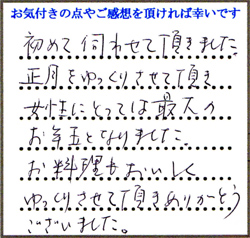 お気付きの点やご感想を頂ければ幸いです
初めて伺わせて頂きました
正月をゆっくりさせて頂き
女性にとっては最大の
お年玉となりました。
お料理もおいしく
ゆっくりさせて頂きありがとう
ございました。